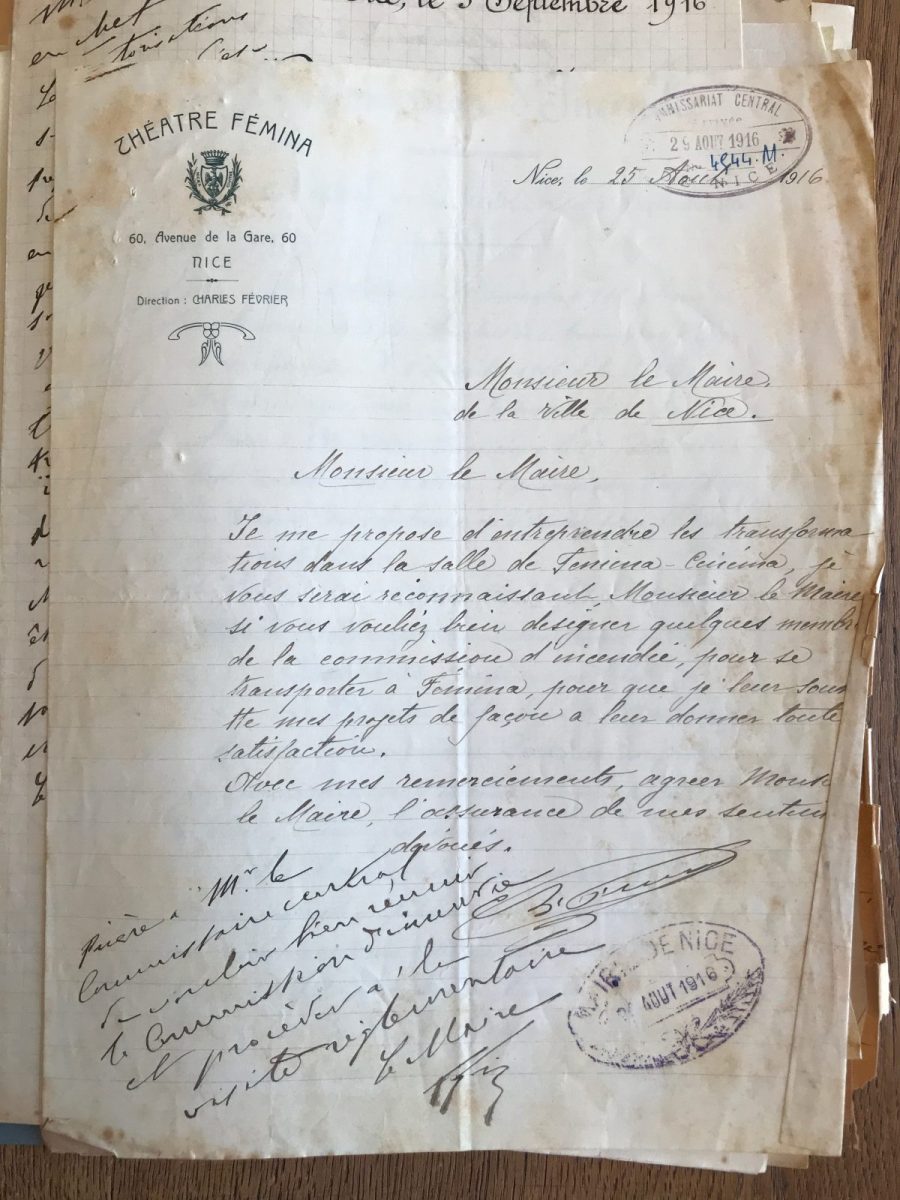 Septembre 1916
en
THÉATRE FÉMINA
60, Avenue de la Gare, 60
NICE
Direction : CHARLES FÉVRIER
COMMISSARIAT CENTRAL
29 AOUT 1916
4944. M.
NICE
Nice, le 25 Aout 1916
Monsieur le Maire.
de la Ville de Nice.
Monsieur le Maire,
Je me propose d'entreprendre les transforma
tions dans la salle de Femina-Cinéma, je
vous serai réconnaissant Monsieur le Maire
si vous vouliez bien désigner quelques membr
de la commission d'incendie, pour se
transporter à Fémina, pour que je leur soum
tte mes projets de façon a leur donner toute
satisfaction.
Avec mes remerciements, agreer Monsi
le Maire, l'assurance de mes sentim
dévoués.
Prière à Mr. le
Commissaire central
de vouloir bien réunir
la Commission d'incendie
et procéder à la
visite réglementaire
Le Maire
MAIRIE DE NICE
AOUT 1916